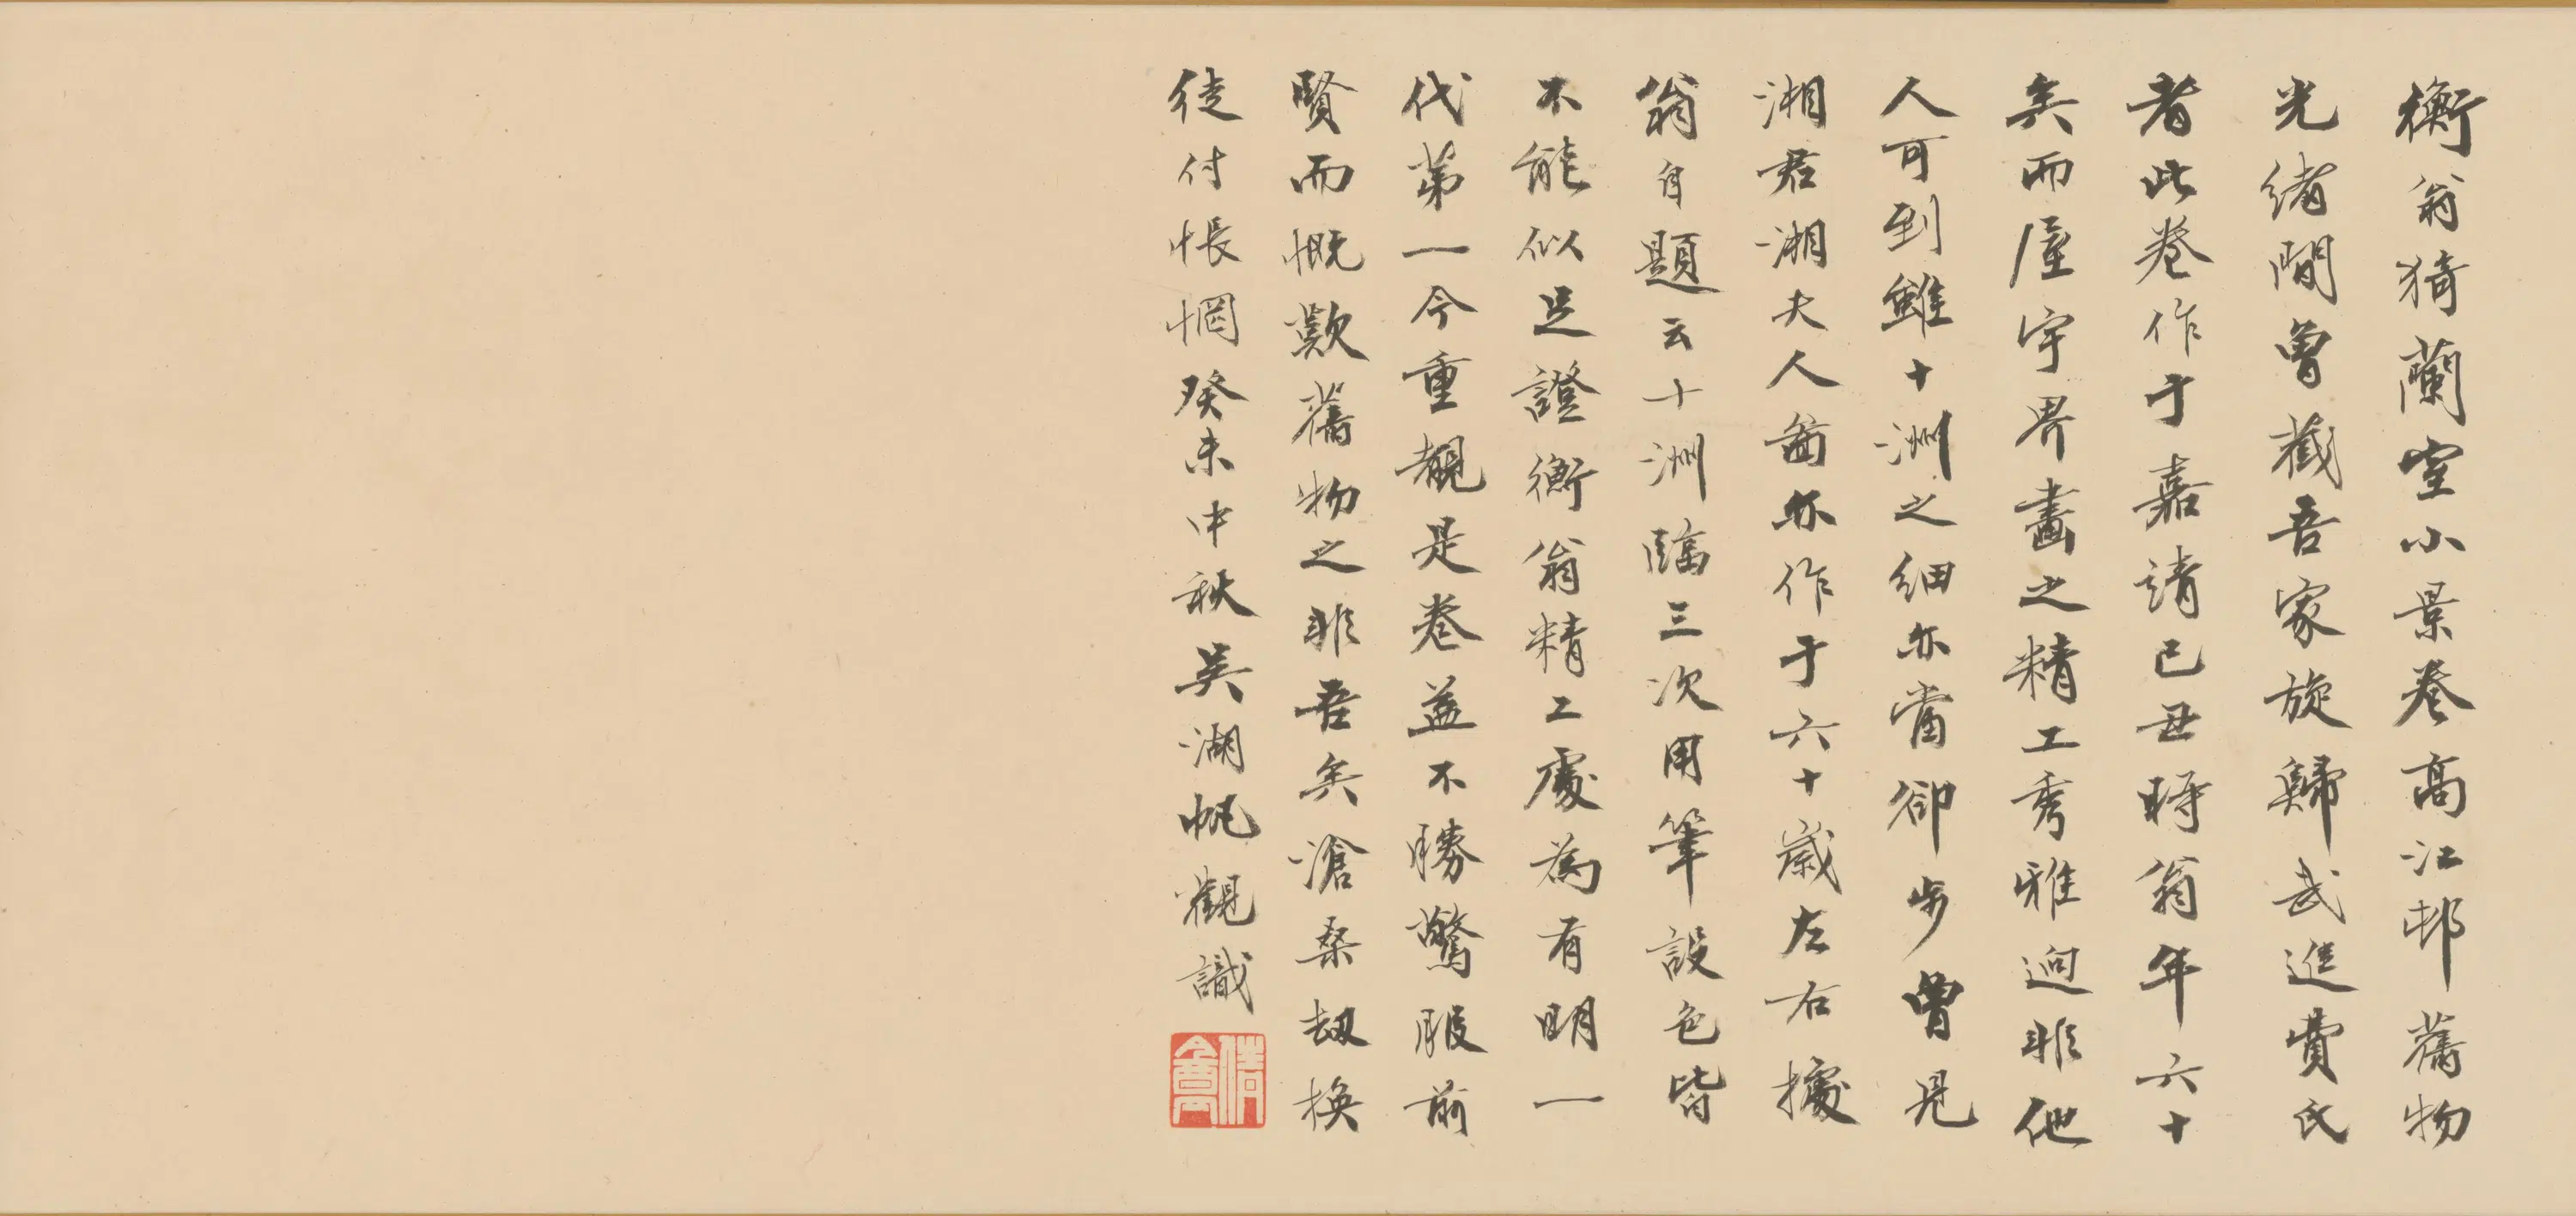 衡翁猗蘭室小景卷高江邨舊物
光緒間曾藏吾家旋歸武進費氏
者此卷作于嘉靖己丑時翁年六十
矣而屋宇界畫之精工秀雅迥非他
人可到雖十洲之細亦當卻步曾見
湘君湘夫人啚亦作于六十歲左右據
翁自題云十洲臨三次用筆設色皆
不能似足證衡翁精工處為有明一
代第一今重覩是卷益不勝驚服前
賢而慨歎舊物之非吾矣滄桑劫換
徒付悵惘癸未中秋吳湖帆觀識
倩盦